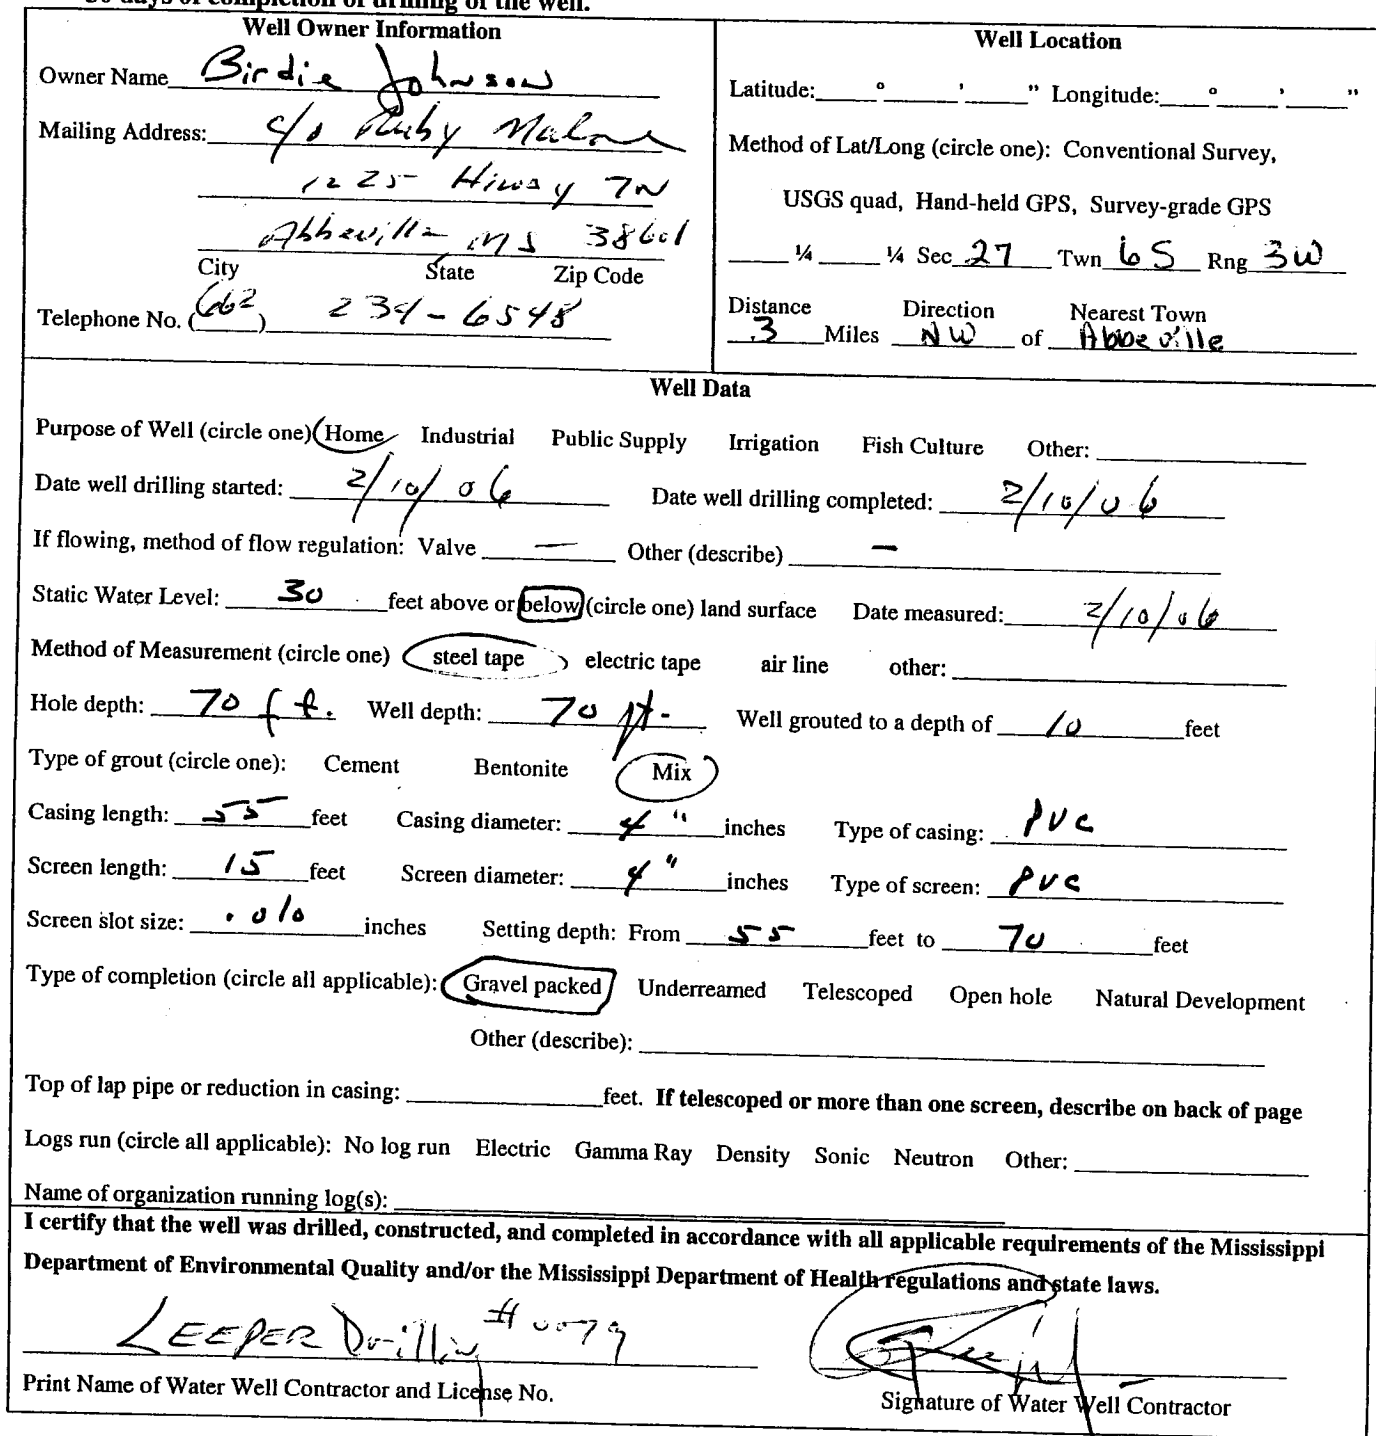 30 days of completion of drilling of the well.
Well Owner Information
Owner Name Birdie Johnson
Mailing Address: c/o Ruby Malone
1225 Hiway 7N
Abbeville MS 38601
City State Zip Code
Telephone No. (662) 234-6548
Well Location
Latitude:____°____'____" Longitude:____°____'____"
Method of Lat/Long (circle one): Conventional Survey,
USGS quad, Hand-held GPS, Survey-grade GPS
____ ¼ ____ ¼ Sec 27 Twn 6S Rng 3W
Distance Direction Nearest Town
3 Miles NW of Abbeville
Well Data
Purpose of Well (circle one) Home Industrial Public Supply Irrigation Fish Culture Other:
Date well drilling started: 2/10/06 Date well drilling completed: 2/10/06
If flowing, method of flow regulation: Valve — Other (describe) —
Static Water Level: 30 feet above or below (circle one) land surface Date measured: 2/10/06
Method of Measurement (circle one) steel tape electric tape air line other:
Hole depth: 70 ft. Well depth: 70 ft. Well grouted to a depth of 10 feet
Type of grout (circle one): Cement Bentonite Mix
Casing length: 55 feet Casing diameter: 4" inches Type of casing: PVC
Screen length: 15 feet Screen diameter: 4" inches Type of screen: PVC
Screen slot size: .010 inches Setting depth: From 55 feet to 70 feet
Type of completion (circle all applicable): Gravel packed Underreamed Telescoped Open hole Natural Development
Other (describe):
Top of lap pipe or reduction in casing: feet. If telescoped or more than one screen, describe on back of page
Logs run (circle all applicable): No log run Electric Gamma Ray Density Sonic Neutron Other:
Name of organization running log(s):
I certify that the well was drilled, constructed, and completed in accordance with all applicable requirements of the Mississippi
Department of Environmental Quality and/or the Mississippi Department of Health regulations and state laws.
LEEPER Drilling #0079
Print Name of Water Well Contractor and License No.
Signature of Water Well Contractor